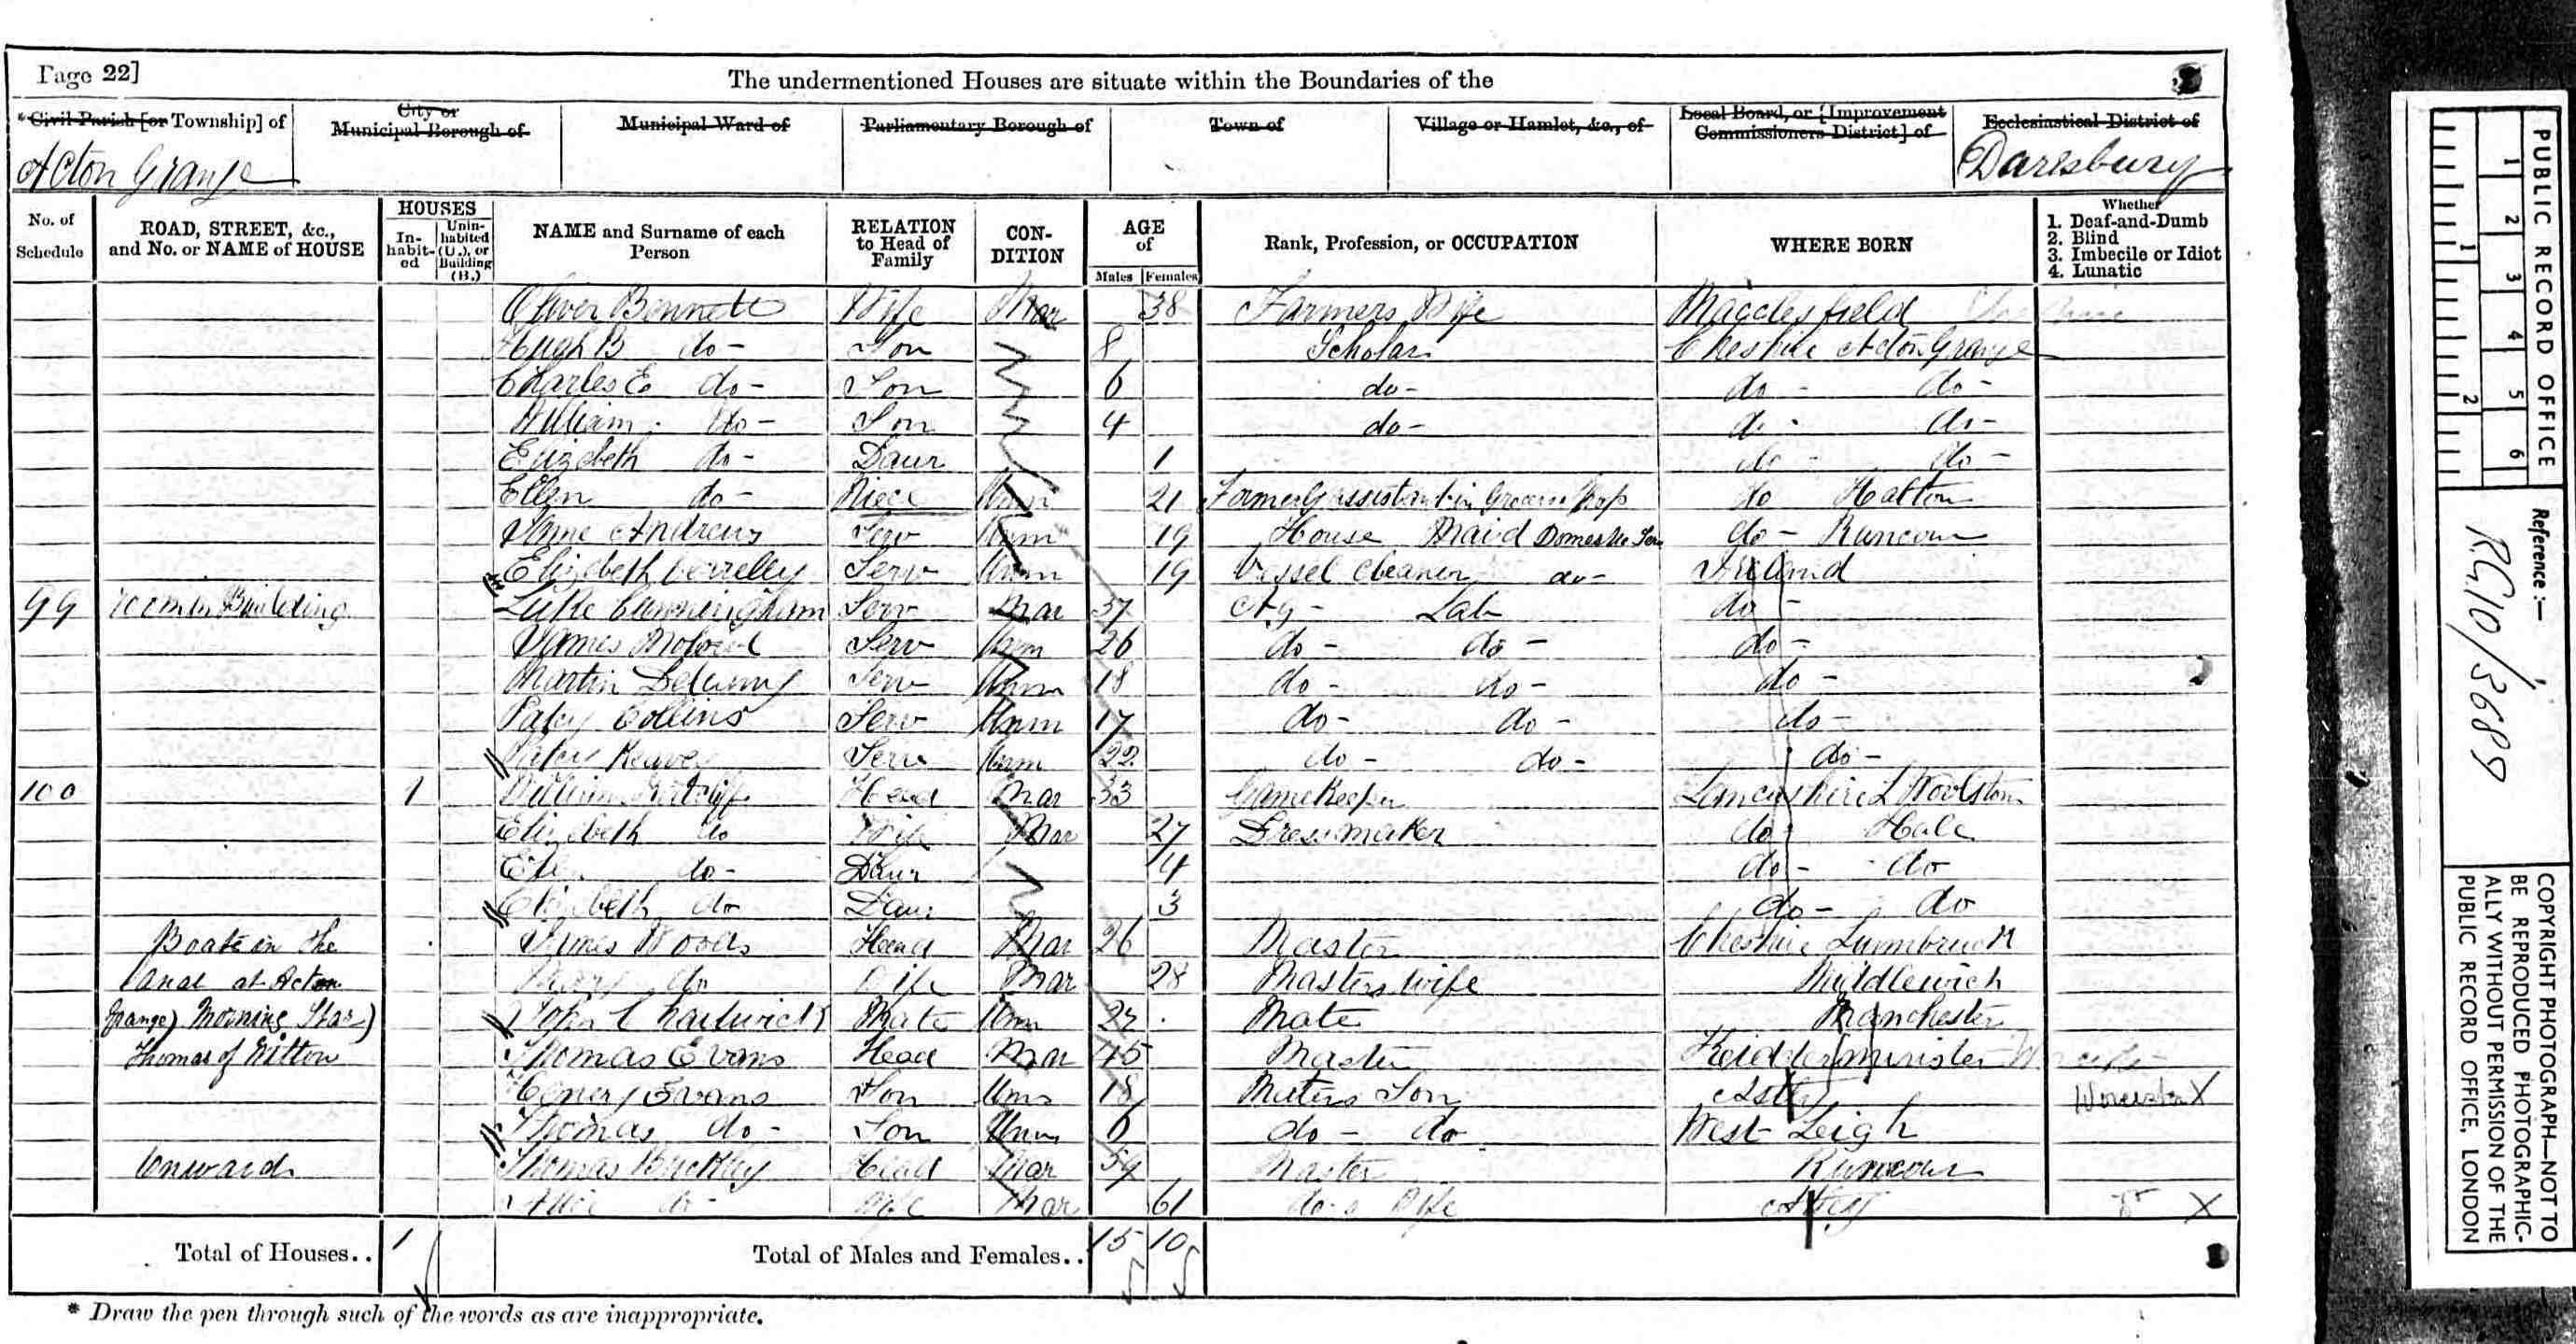 Page 22]
The undermentioned Houses are situate within the Boundaries of the
* Civil Parish [or Township] of
City or Municipal Borough of
Municipal Ward of
Parliamentary Borough of
Town of
Village or Hamlet, &c., of
Local Board, or [Improvement Commissioners District] of
Ecclesiastical District of
Acton Grange
Daresbury
No. of Schedule
ROAD, STREET, &c., and No. or NAME of HOUSE
HOUSES
In-habit-ed
Unin-habited (U.), or Building (B.)
NAME and Surname of each Person
RELATION to Head of Family
CON-DITION
AGE of
Males
Females
Rank, Profession, or OCCUPATION
WHERE BORN
Whether
1. Deaf-and-Dumb
2. Blind
3. Imbecile or Idiot
4. Lunatic
Bennett Wife Mar 38 Farmers Wife Macclesfield
Hugh B do- Son 8 Scholar Cheshire Acton Grange
Charles E do- Son 6 do- do- do-
William do- Son 4 do- do- do-
Elizabeth do- Daur 1 do- do-
Ellen do- Niece Unm 21 Formerly assistant in Grocers Shop do Halton
Anne Andrews Serv Unm 19 House Maid Domestic Serv do- Runcorn
Elizabeth Serv Unm 19 Vessel cleaner do- Ireland
99 Building Luke Cunningham Serv Mar 37 Ag- Lab do-
James Serv Unm 26 do- do- do-
Martin Serv Unm 18 do- do- do-
Collins Serv Unm 17 do- do- do-
Serv Unm 22 do- do- do-
100 1 William Head Mar 33 Gamekeeper Lancashire Woolston
Elizabeth do Wife Mar 27 Dressmaker do Hale
do- Daur 4 do- do
Elizabeth do Daur 3 do- do
Boats in the James Woods Head Mar 26 Master Cheshire
Canal at Acton Mary do Wife Mar 28 Masters wife Middlewich
Grange) Morning Star) John Chadwick Mate Unm Mate Manchester
Thomas of Thomas Evans Head Mar 45 Master Keidderminister
Henery Evans Son Unm 18 Son Worcester X
Thomas do- Son Unm 6 do- do West Leigh
Onward Thomas Buckley Head Mar Master Runcorn
do- Wife Mar 61 do-s Wife X
Total of Houses.. 1
Total of Males and Females.. 15 10
* Draw the pen through such of the words as are inappropriate.
PUBLIC RECORD OFFICE
1 2 3 4 5 6
1 2
Reference :—
RG10/3689
COPYRIGHT PHOTOGRAPH—NOT TO
BE REPRODUCED PHOTOGRAPHIC-
ALLY WITHOUT PERMISSION OF THE
PUBLIC RECORD OFFICE, LONDON